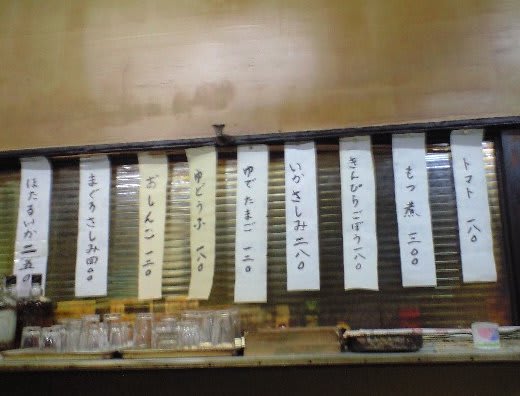 トマト 一八〇
もつ煮 三〇〇
きんぴらごぼう 一八〇
いかさしみ 二八〇
ゆでたまご 一二〇
ゆどうふ 一八〇
おしんこ 一二〇
まぐろさしみ 四〇〇
ほたるいか 二五〇